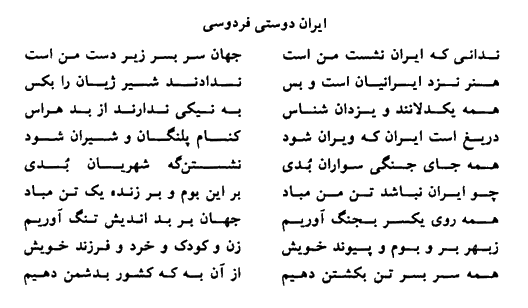 ایران دوستی فردوسی
ندانی که ایران نشست من است جهان سر بسر زیر دست من است
هنر نزد ایرانیان است و بس ندادند شیر ژیان را بکس
همه یکدلانند و یزدان شناس به نیکی ندارند از بد هراس
دریغ است ایران که ویران شود کنام پلنگان و شیران شود
همه جای جنگی سواران بُدی نشستن‌گه شهریان بُدی
چو ایران نباشد تن من مباد بر این بوم و بر زنده یک تن مباد
همه روی یکسر بجنگ آوریم جهان بر بد اندیش تنگ آوریم
زبهر بر و بوم و پیوند خویش زن و کودک و خرد و فرزند خویش
همه سر بسر تن بکشتن دهیم از آن به که کشور بدشمن دهیم